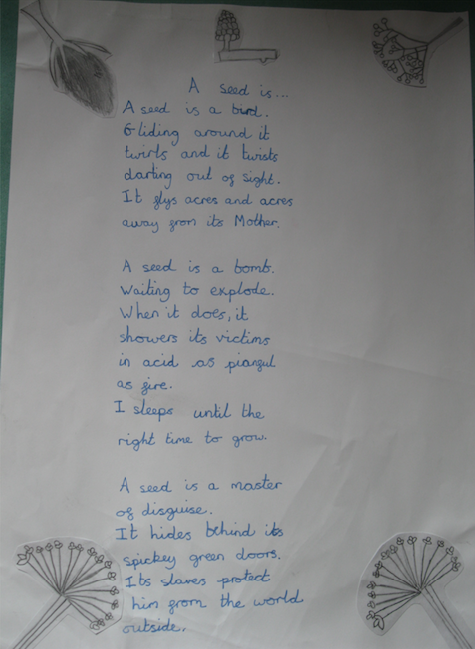 A seed is...
A seed is a bird.
Gliding around it
twirls and it twists
darting out of sight.
It flys acres and acres
away from its Mother.
A seed is a bomb.
Waiting to explode.
When it does, it
showers its victims
in acid as pianful
as fire.
I sleeps until the
right time to grow.
A seed is a master
of disguise.
It hides behind its
spickey green doors.
Its slaves protect
him from the world
outside.